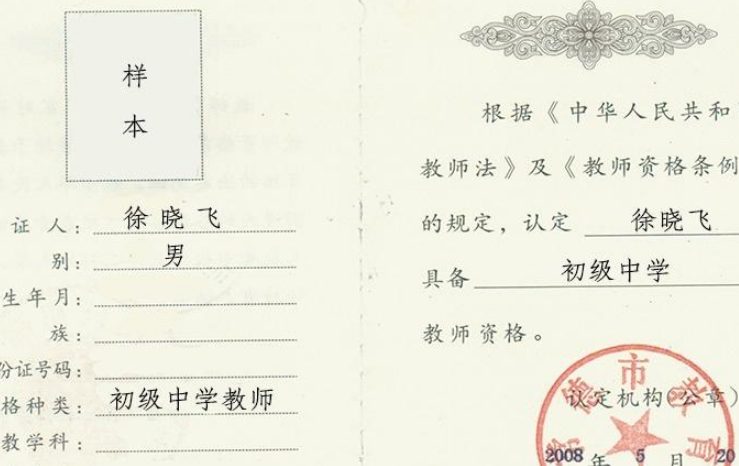 样
本
证 人：徐晓飞
别：男
生年月：
族：
份证号码：
格种类：初级中学教师
教学科：
根据《中华人民共和
教师法》及《教师资格条例
的规定，认定 徐晓飞
具备 初级中学
教师资格。
市教育
认定机构（公章）
2008 年 5 月 20